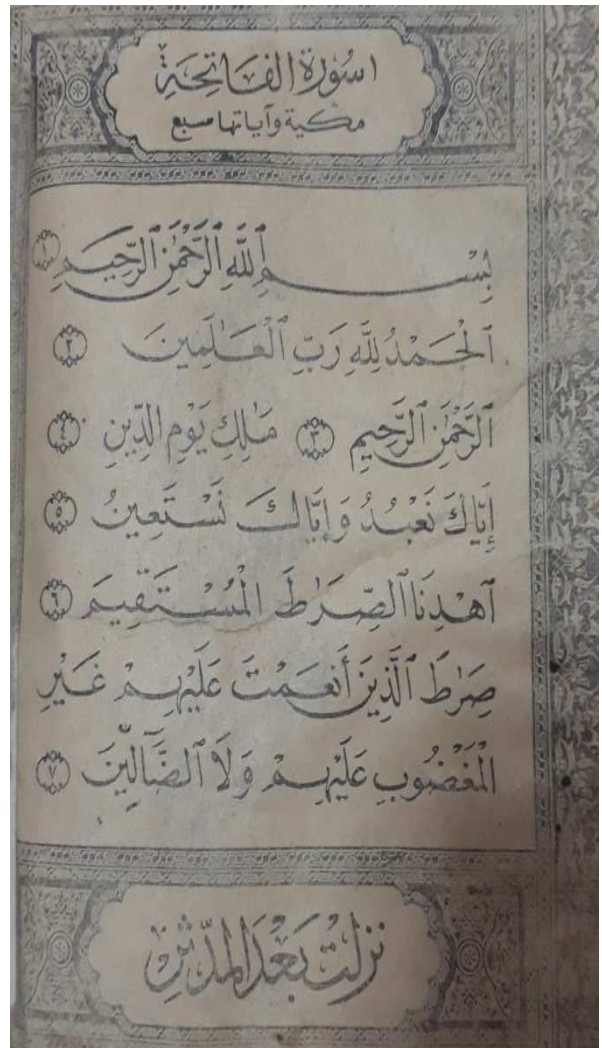 ١سُورَةُ الفَاتِحَةِ
مكية وآياتها سبع
بِسْمِ ٱللَّهِ ٱلرَّحْمَٰنِ ٱلرَّحِيمِ ١
ٱلْحَمْدُ لِلَّهِ رَبِّ ٱلْعَٰلَمِينَ ٢
ٱلرَّحْمَٰنِ ٱلرَّحِيمِ ٣ مَٰلِكِ يَوْمِ ٱلدِّينِ ٤
إِيَّاكَ نَعْبُدُ وَإِيَّاكَ نَسْتَعِينُ ٥
ٱهْدِنَا ٱلصِّرَٰطَ ٱلْمُسْتَقِيمَ ٦
صِرَٰطَ ٱلَّذِينَ أَنْعَمْتَ عَلَيْهِمْ غَيْرِ
ٱلْمَغْضُوبِ عَلَيْهِمْ وَلَا ٱلضَّآلِّينَ ٧
نزلت بَعْدَ المدّثِر